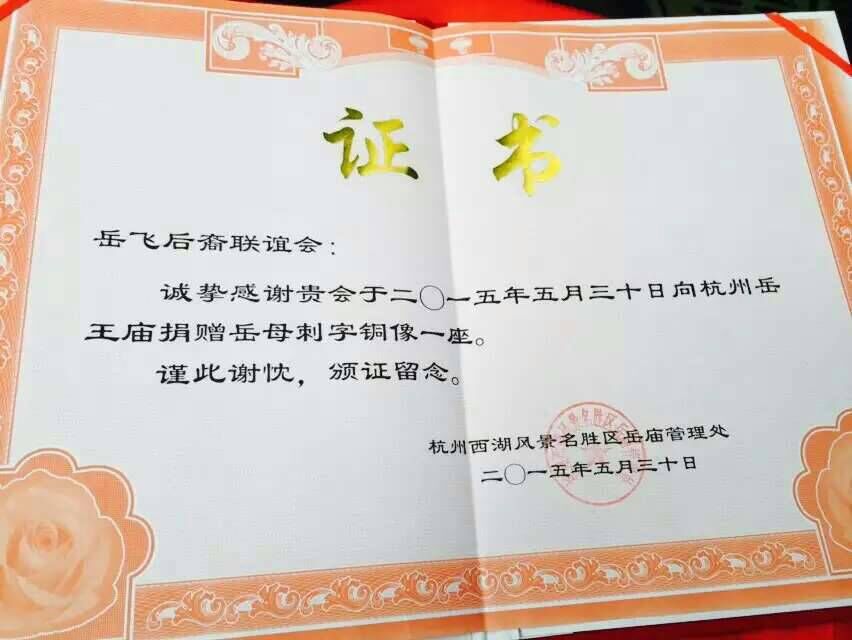 证书
岳飞后裔联谊会：
诚挚感谢贵会于二〇一五年五月三十日向杭州岳
王庙捐赠岳母刺字铜像一座。
谨此谢忱，颁证留念。
杭州西湖风景名胜区岳庙管理处
二〇一五年五月三十日